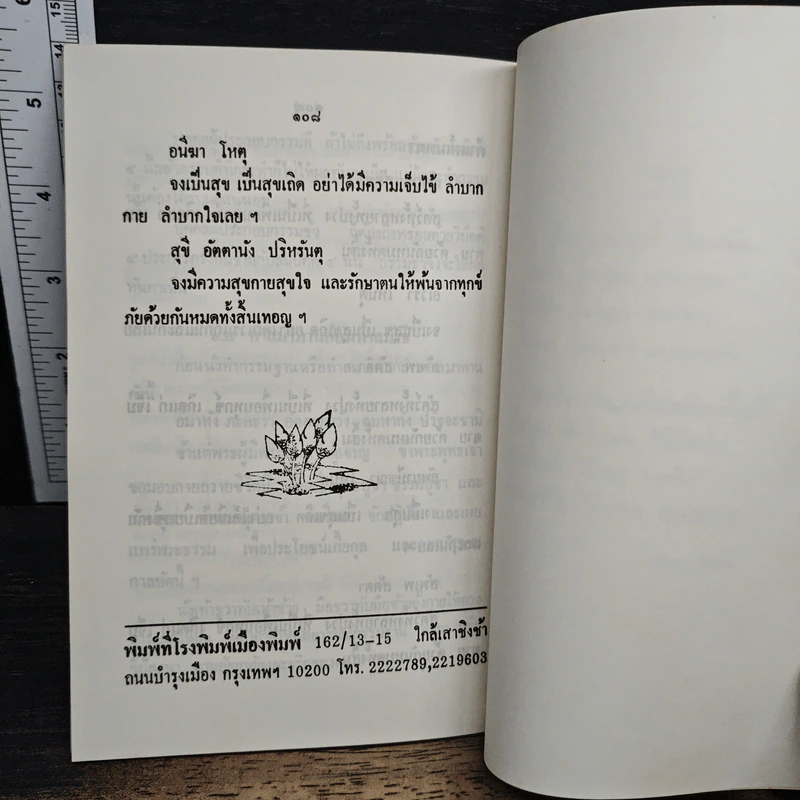 ๑๐๘
อนีฆา โหตุ
จงเป็นสุข เป็นสุขเถิด อย่าได้มีความเจ็บไข้ ลำบาก
กาย ลำบากใจเลย ฯ
สุขี อัตตานัง ปริหรันตุ
จงมีความสุขกายสุขใจ และรักษาตนให้พ้นจากทุกข์
ภัยด้วยกันหมดทั้งสิ้นเทอญ ฯ
พิมพ์ที่โรงพิมพ์เมืองพิมพ์ 162/13-15 ใกล้เสาชิงช้า
ถนนบำรุงเมือง กรุงเทพฯ 10200 โทร. 2222789,2219603
5
4
3
2
15
14